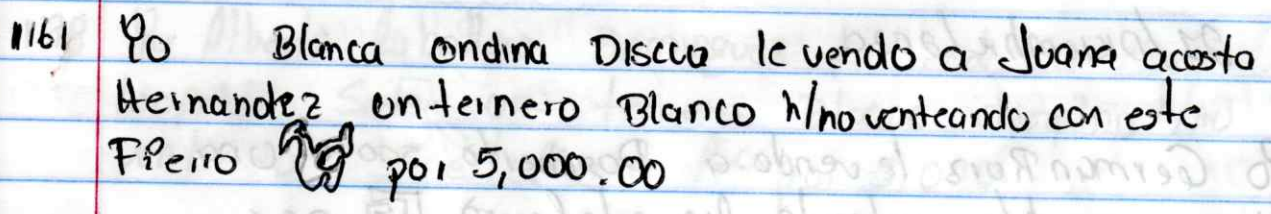 1161 Yo Blanca ondina Discua le vendo a Juana acosta
Hernandez un ternero Blanco h/no venteando con este
Fierro por 5,000.00